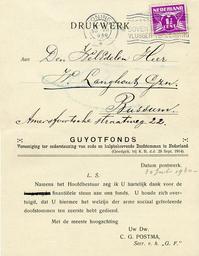 DRUKWERK
NEDERLAND
Aan Den Weledelen Heer
Langhout Gzn.
Bussum.
Amersfoortsche straatweg 22.
GUYOTFONDS
Vereeniging ter ondersteuning van oude en hulpbehoevende Doofstommen in Nederland
(Goedgek. bij K. B. d.d. 28 Sept. 1914).
Datum postmerk.
L. S.
Namens het Hoofdbestuur zeg ik U hartelijk dank voor de
financiëele steun aan ons fonds. U houde zich over-
tuigd, dat U hiermee het welzijn der arme sociaal geïsoleerde
doofstommen ten zeerste hebt gediend.
Met de meeste hoogachting
Uw Dw.
C. G. POSTMA,
Secr. v. h. „G. F."